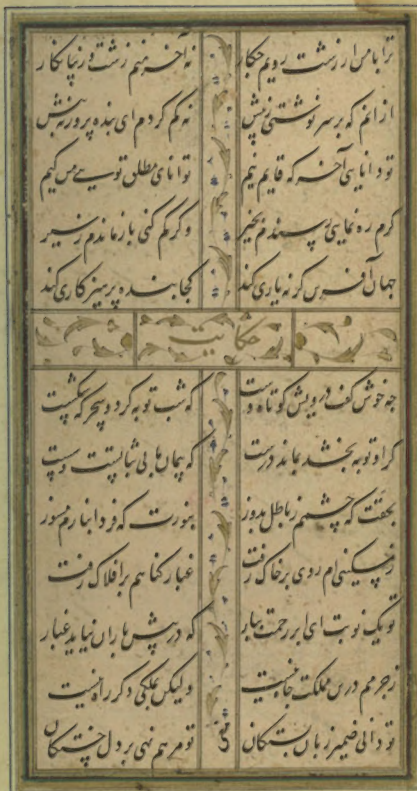 ترا با من ار زشت رویم چکار نه آخر منم زشت و زیبا نگار
از آنم که بر سر نوشتی ز پیش نه کم کردم ای بنده پرور نه بیش
تو دانایی آخر که قادر نیم توانای مطلق تویی من کیم
گرم ره نمایی رسیدم بخیر وگر گم کنی باز ماندم ز سیر
جهان آفرین گر نه یاری کند کجا بنده پرهیزکاری کند
حکایت
چه خوش گفت درویش کوتاه دست که شب توبه کرد و سحرگه شکست
گر او توبه بخشد بماند درست که پیمان ما بی ثباتست و سست
بحقت که چشمم ز باطل بدوز بنورت که فردا بنارم مسوز
ز مسکینی ام روی بر خاک رفت غبار گناهم بر افلاک رفت
تو یک نوبت ای ابر رحمت ببار که در پیش باران نیاید غبار
ز جرمم درین مملکت جاه نیست ولیکن بملکی دگر راه نیست
تو دانی ضمیر زبان بستگان تو مرهم نهی بر دل خستگان